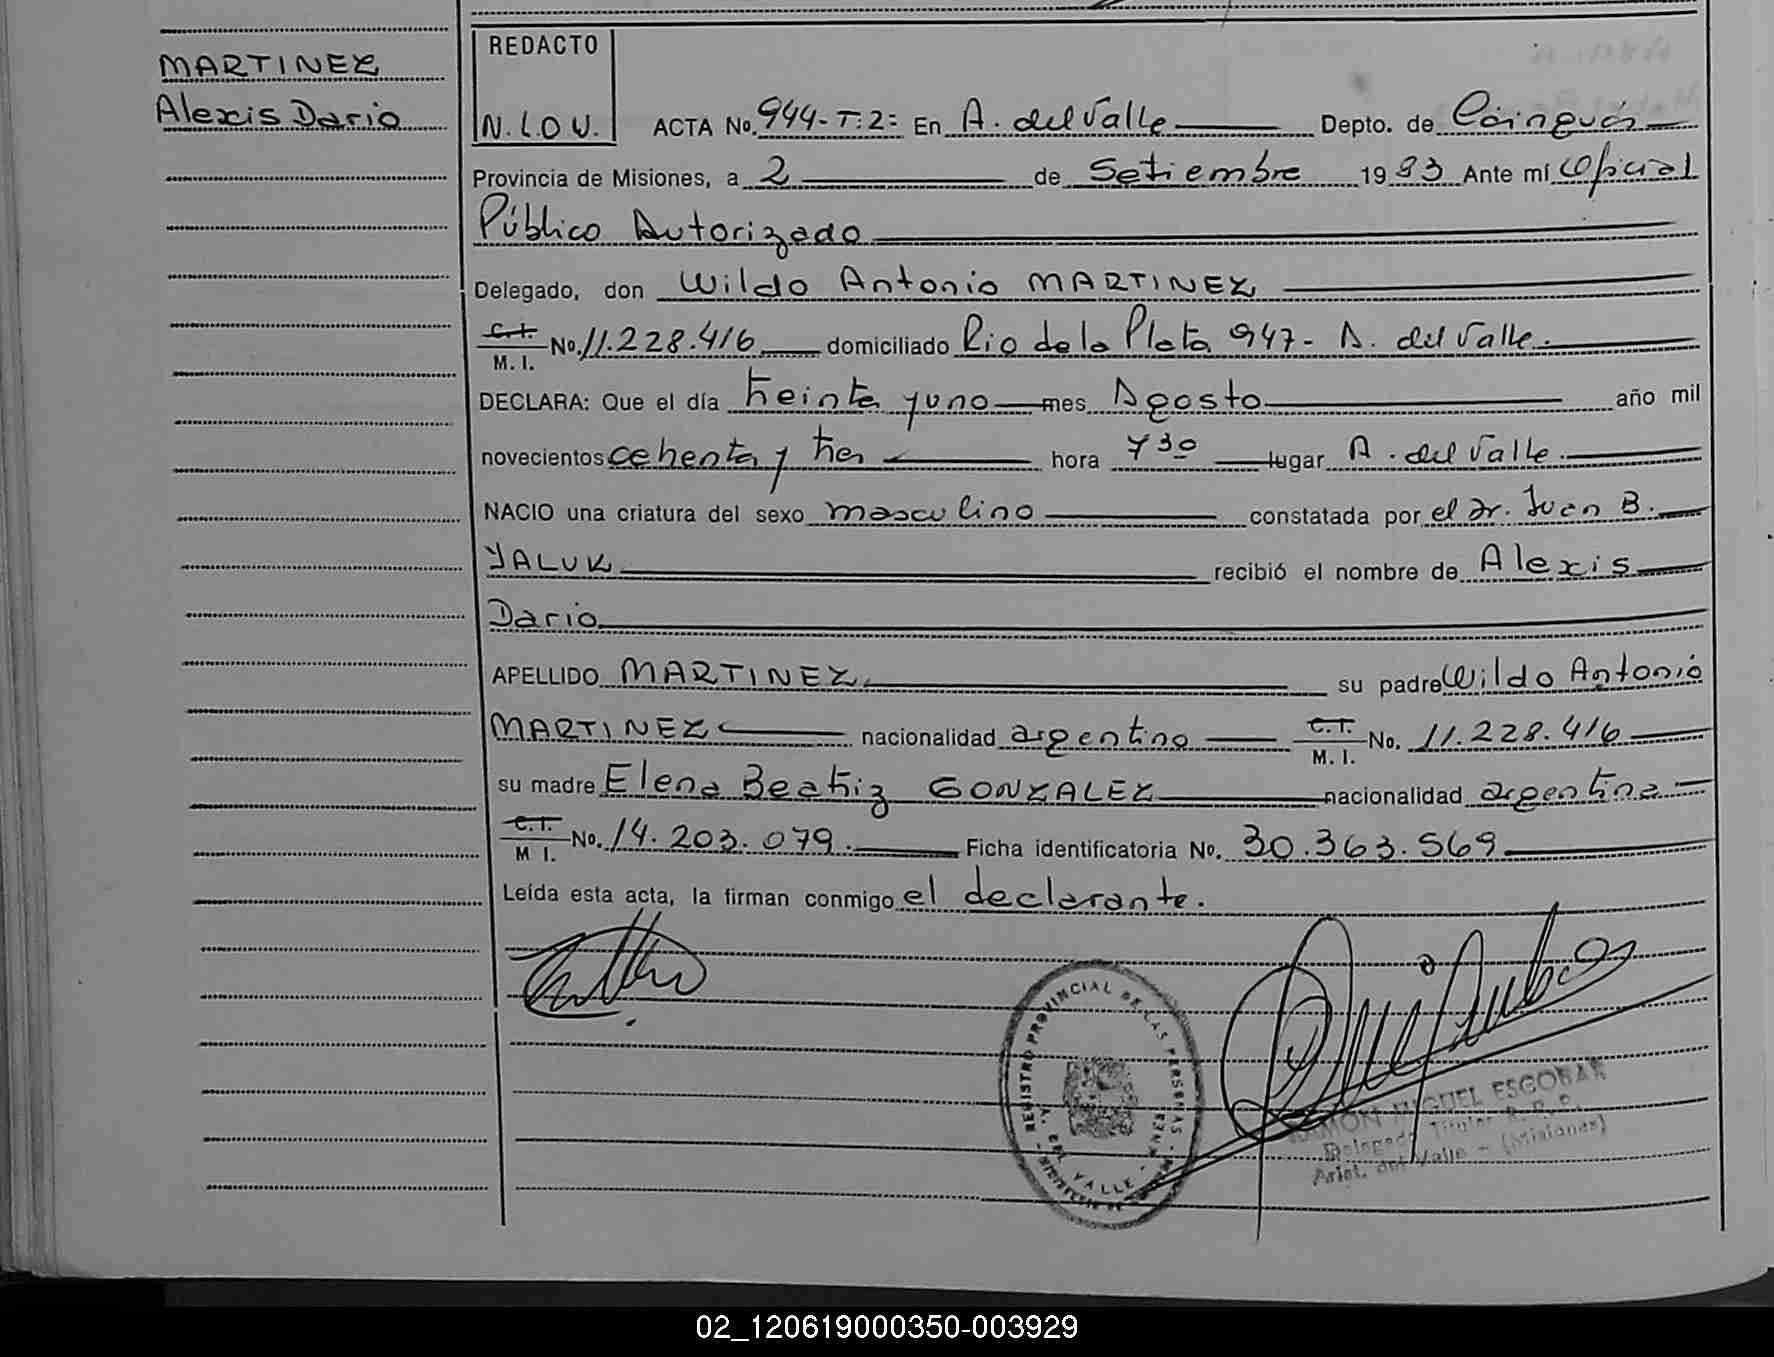 MARTINEZ
Alexis Dario
REDACTO
N.L.O.V.
ACTA No. 944-T:2: En A. del Valle Depto. de Cainguás
Provincia de Misiones, a 2 de Setiembre 1983 Ante mí Oficial
Público Autorizado
Delegado, don Wildo Antonio MARTINEZ
C.I. M. I. No. 11.228.416 domiciliado Rio de la Plata 947- A. del Valle.
DECLARA: Que el día treinta y uno mes Agosto año mil
novecientos ochenta y tres hora 7 30 lugar A. del Valle.
NACIO una criatura del sexo masculino constatada por el Dr. Juan B.
YALUK recibió el nombre de Alexis
Dario
APELLIDO MARTINEZ su padre Wildo Antonio
MARTINEZ nacionalidad argentino C.I. M. I. No. 11.228.416
su madre Elena Beatriz GONZALEZ nacionalidad argentina
C.I. M I. No. 14.203.079. Ficha identificatoria No. 30.363.569
Leída esta acta, la firman conmigo el declarante.
REGISTRO PROVINCIAL DE LAS PERSONAS
A. DEL VALLE
RAMON MIGUEL ESCOBAR
Delegado Titular R.P.P.
Arist. del Valle - (Misiones)
02_120619000350-003929